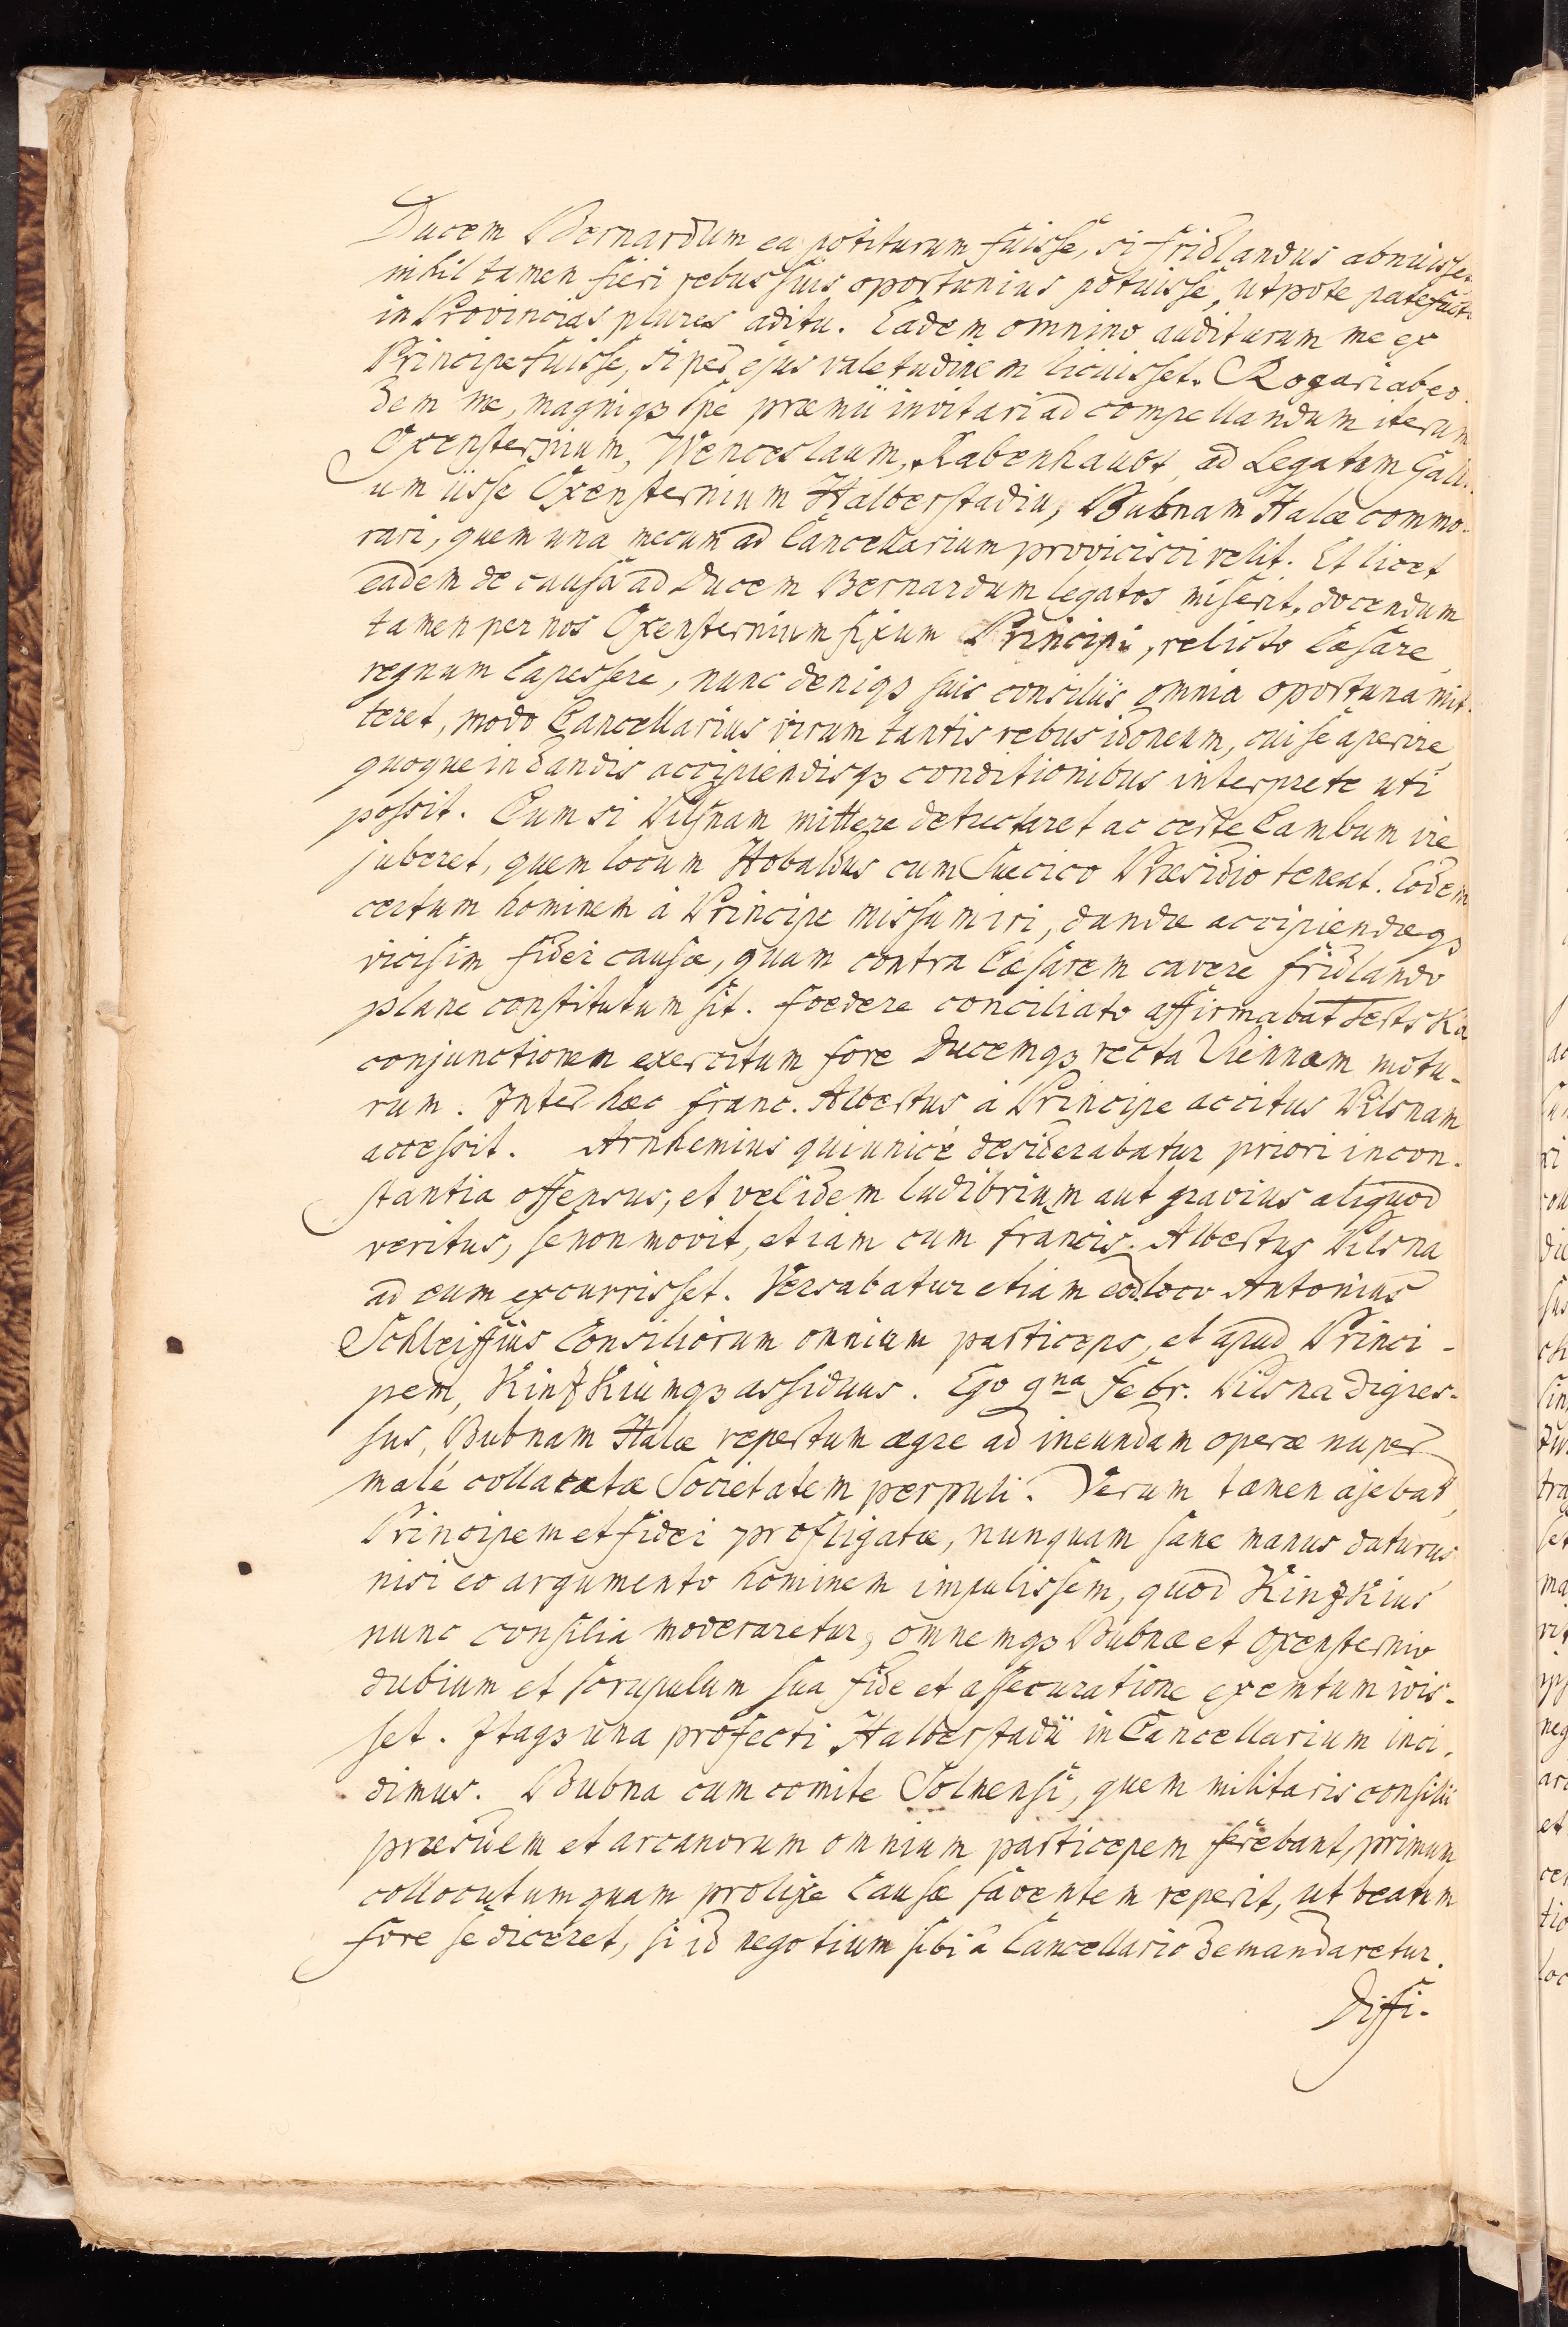 Ducem Bernardum ea potiturum fuisse, si fridlandus abnuisset
nihil tamen fieri rebus suis oportunius potuisse, utpote patefacto
in Provincias plures aditu. Eadem omnino auditurum me ex
Principe fuisse, si per ejus valetudinem licuisset. Rogari ab eo-
dem me, magniqȝ spe præmii invitari ad compellandum iterum
Oxensternium, Wenceslaum, Rabenhaubt, ad Legatum Galli-
um iisse Oxensternium Halberstadiu, Bubnam Halæ commo-
rari, quem una mecum ad Cancellarium provicisci velit. Et licet
eadem de causa ad Ducem Bernardum legatos miserit, docendum
tamen per nos Oxensternium fixum Principi, relicto Cæsare,
regnum Capessere, nunc deniqȝ suis consiliis omnia oportuna mit-
teret, modo Cancellarius virum tantis rebus idoneum, cui se aperire,
quoque in dandis accipiendisqȝ conditionibus interprete uti
possit. Eum si Pilsnam mittere detrectaret ac certe Cambum ire
juberet, quem locum Hobaldus cum Suecico Præsidio teneat. Eodem
certum hominem à Principe missum iri, dandæ accipiendæqȝ
vicisim fidei causæ, quam contra Cæsarem cavere fridlando
plane constitutum sit. foedere conciliato affirmabat Tertska
conjunctionem exercitum fore Ducemqȝ recta Viennam motu-
rum. Inter hæc franc. Albertus à Principe accitus Pilsnam
accessit. Arnhemius qui unicè desiderabatur priori incon-
stantia offensus, et vel idem ludibrium aut gravius aliquod
veritus, se non movit, etiam cum francis. Albertus Pilsna
ad eum excurrisset. Versabatur etiam eod. loco Antonius
Schleiffius Consiliorum omnium particeps, et apud Princi-
pem, Kinzkiumqȝ assiduus. Ego 9na Febr. Pilsna digres-
sus, Bubnam Halæ repertum ægre ad ineundam operæ nuper
malè collacatæ Societatem perpuli. Verum tamen ajebat,
Principem et fidei profligatæ, nunquam sane manus daturus
nisi eo argumento hominem impulissem, quod Kinzkius
nunc consilia moderaretur, omnemqȝ Bubnæ et Oxensternio
dubium et scrupulum sua fide et assecuratione exemtum ivis-
set. Itaqȝ una profecti Halberstadii in Cancellarium inci-
dimus. Bubna cum comite Solmensi, quem militaris consilii
præsulem et arcanorum omnium participem ferebant, primum
collocutum quam prolixe Causæ faventem reperit, ut beatum
fore se diceret, si id negotium sibi a Cancellario demandaretur.
Diffi-